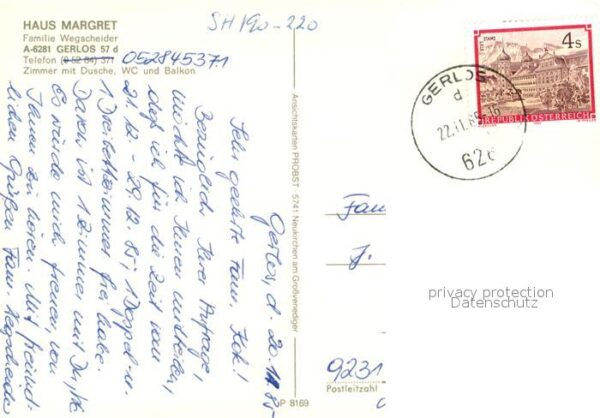 HAUS MARGRET
Familie Wegscheider
A-6281 GERLOS 57 d
Telefon (0 52 84) 371 052845371
Zimmer mit Dusche, WC und Balkon
SH 190-220
Gerlos, d. 20.11.85
Sehr geehrte Fam.
Bezüglich Ihrer Anfrage,
möchte ich Ihnen mitteilen,
daß ich für die Zeit vom
21.12. - 29.12.85, 1 Doppel- u.
1 Dreibettzimmer frei habe.
Davon ist 1 Zimmer mit Du/WC
Es würde mich freuen, von
Ihnen zu hören. Mit freund-
lichen Grüßen Fam. Wegscheider
Ansichtskarten PROBST 5741 Neukirchen am Großvenediger
P 8169
Fam
J.
9231
Postleitzahl
STIFT STAMS
4 S
REPUBLIK ÖSTERREICH
GERLOS
d
22.11.85
628
privacy protection
Datenschutz